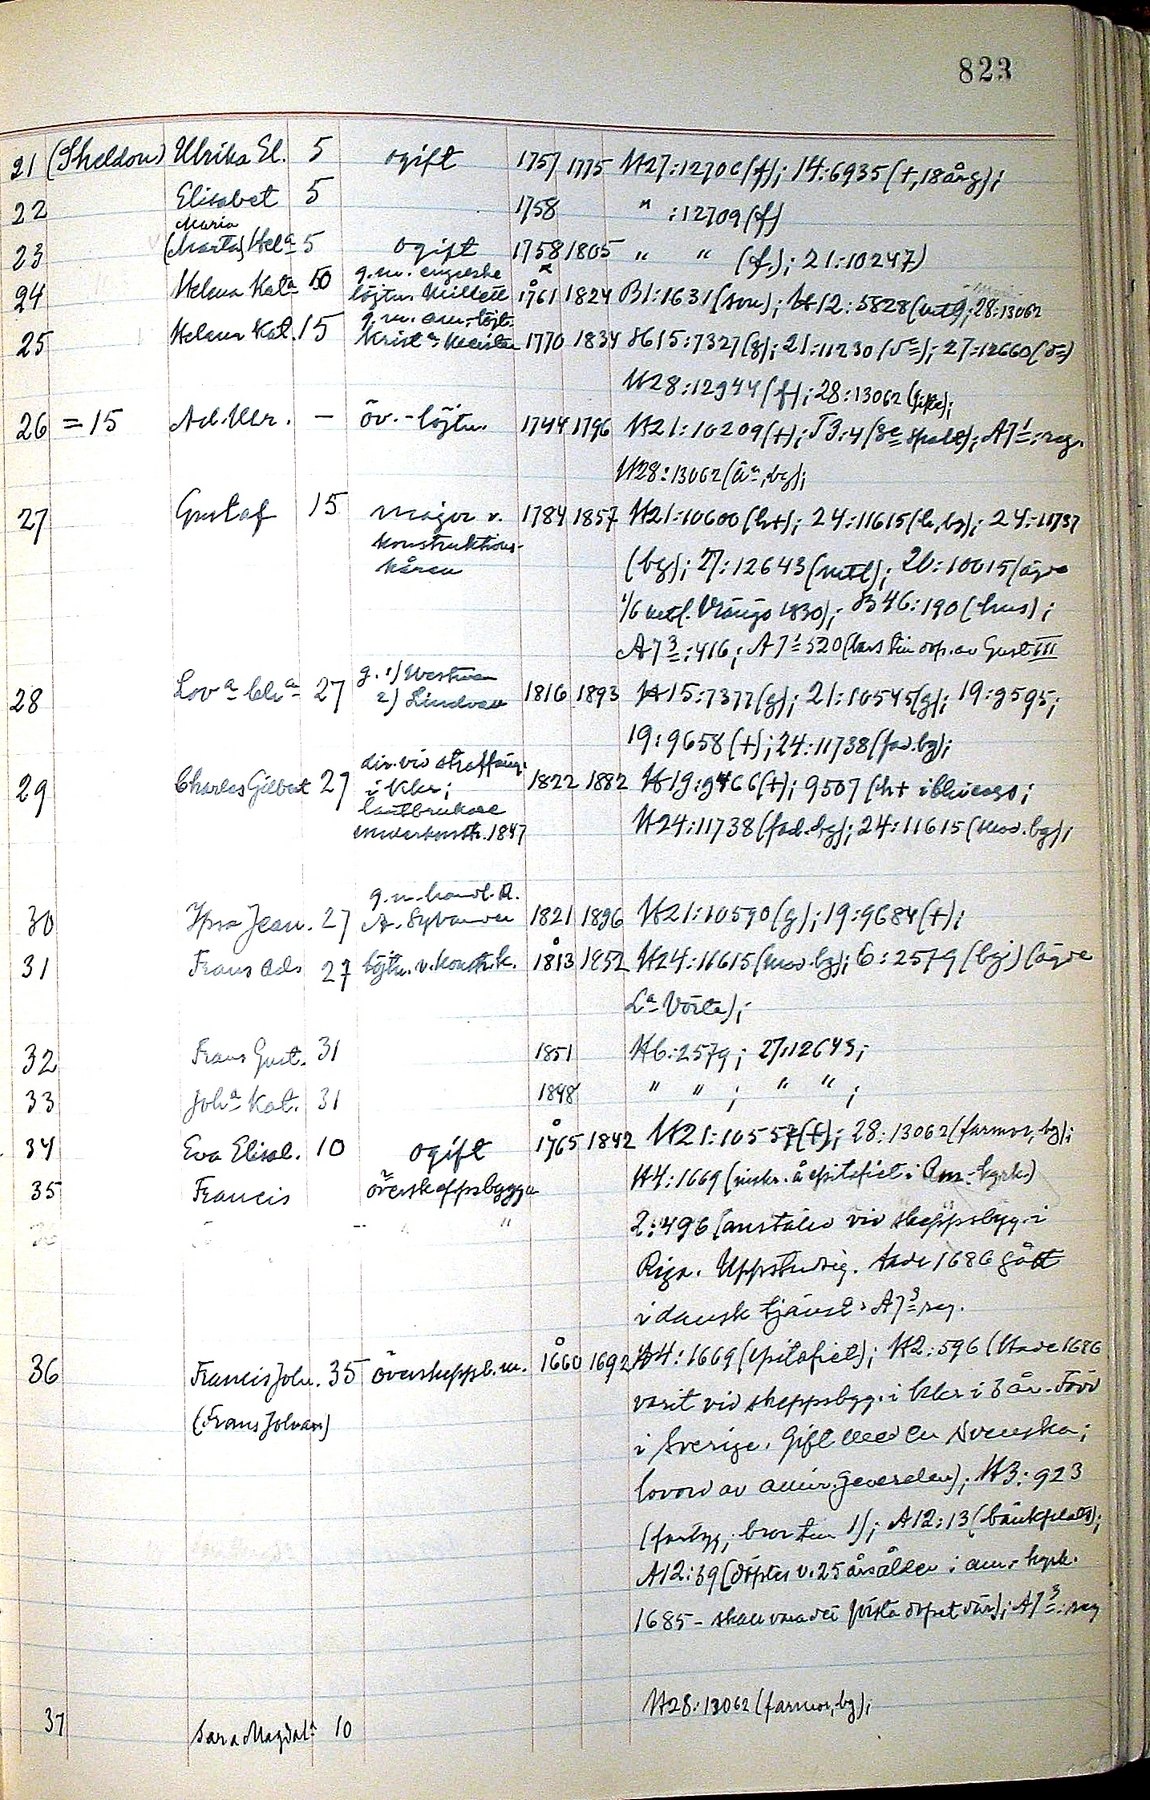 823
21 (Sheldon) Ulrika El. 5 ogift 1757 1775 H27:12706(f); 14:6935(+,18årg);
22 Elisabet 5 1758 " :12709(f)
Maria
23 (Marta) Hel=a 5 ogift 1758 1805 " " (f.); 21:10247)
g.m. engelske
24 Helena Kat=a 10 löjtn. Millett 1761 1824 B1:1631(son); H12:5828( ); 28:13062
g.m. am.-löjt.
25 Helena Kat. 15 Krist=n 1770 1834 H15:7327(g); 21:11230( ); 27:12660( )
H28:12944(f); 28:13062( );
26 =15 Ad. Ulr. - öv.-löjtn. 1744 1796 H21:10209(+); J3:4( spalt); A7 1:reg.
H28:13062( bg);
27 Gustaf 15 major v. 1784 1857 H21:10600(h+); 24:11615(h,bg); 24:11737
konstruktions-
kåren (bg); 27:12643( ); 20:10015(ägde
1/6 Vrångö 1830); B46:190(hus);
A7 3:416; A7 1:520( av Gust III
g. 1) Westman
28 Lov=a Ch=a 27 2) Lindvall 1816 1893 H15:7377(g); 21:10545(g); 19:9595;
19:9658(+); 24:11738(fad.bg);
dir. vid straffäng.
29 Charles Gilbert 27 i Kkr; 1822 1882 H19:9466(+); 9507(h+ i Chicago;
lantbrukare
underkonstr. 1847 H24:11738(fad.bg); 24:11615(mod.bg);
g.m. handl. A.
30 Hma Jean. 27 A. Sylvander 1821 1896 H21:10590(g); 19:9684(+);
31 Frans Ad. 27 löjtn. v. konstr.k. 1813 1852 H24:11615(mod.bg); 6:2579(bg) (ägde
L=a Vörta);
32 Frans Gust. 31 1851 H6:2579; 27:12643;
33 Joh=a Kat. 31 1848 " " ; " " ;
34 Eva Elisab. 10 ogift 1765 1842 H21:10557(+); 28:13062(farmor, bg);
35 Francis överskeppsbygga H4:1669(inskr. å epitafiet i Am-kyrk.)
" 2:496(anställd vid skeppsbygg. i
Riga. Uppstudsig. Hade 1686 gått
i dansk tjänst. A7 3 reg.
36 Francis John. 35 överskeppsb.m. 1660 1692 H4:1669(epitafiet); H2:596(Hade 1686
(Frans Johan) varit vid skeppsbygg. i Kkr i 3 år. Född
i Sverige. Gift med en svenska;
lovord av amir.generalen); H3:923
(fartyg, bror till 1); A12:13(bänkplats);
A12:39(döptes v. 25 årsålder i am.-kyrk.
1685 - skall vara det första dopet där); A7 3:reg
37 Sara Magdal=a 10 H28:13062(farmor, bg);